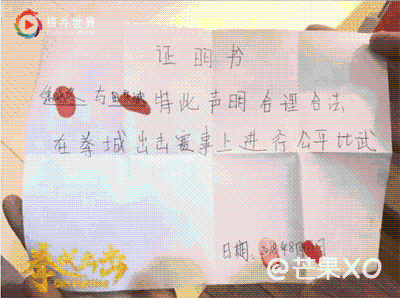 格斗世界
证明书
与 特此声明合理合法
在拳城出击赛事上进行公平比武
日期: 年8月
拳城出击
@芒果XO